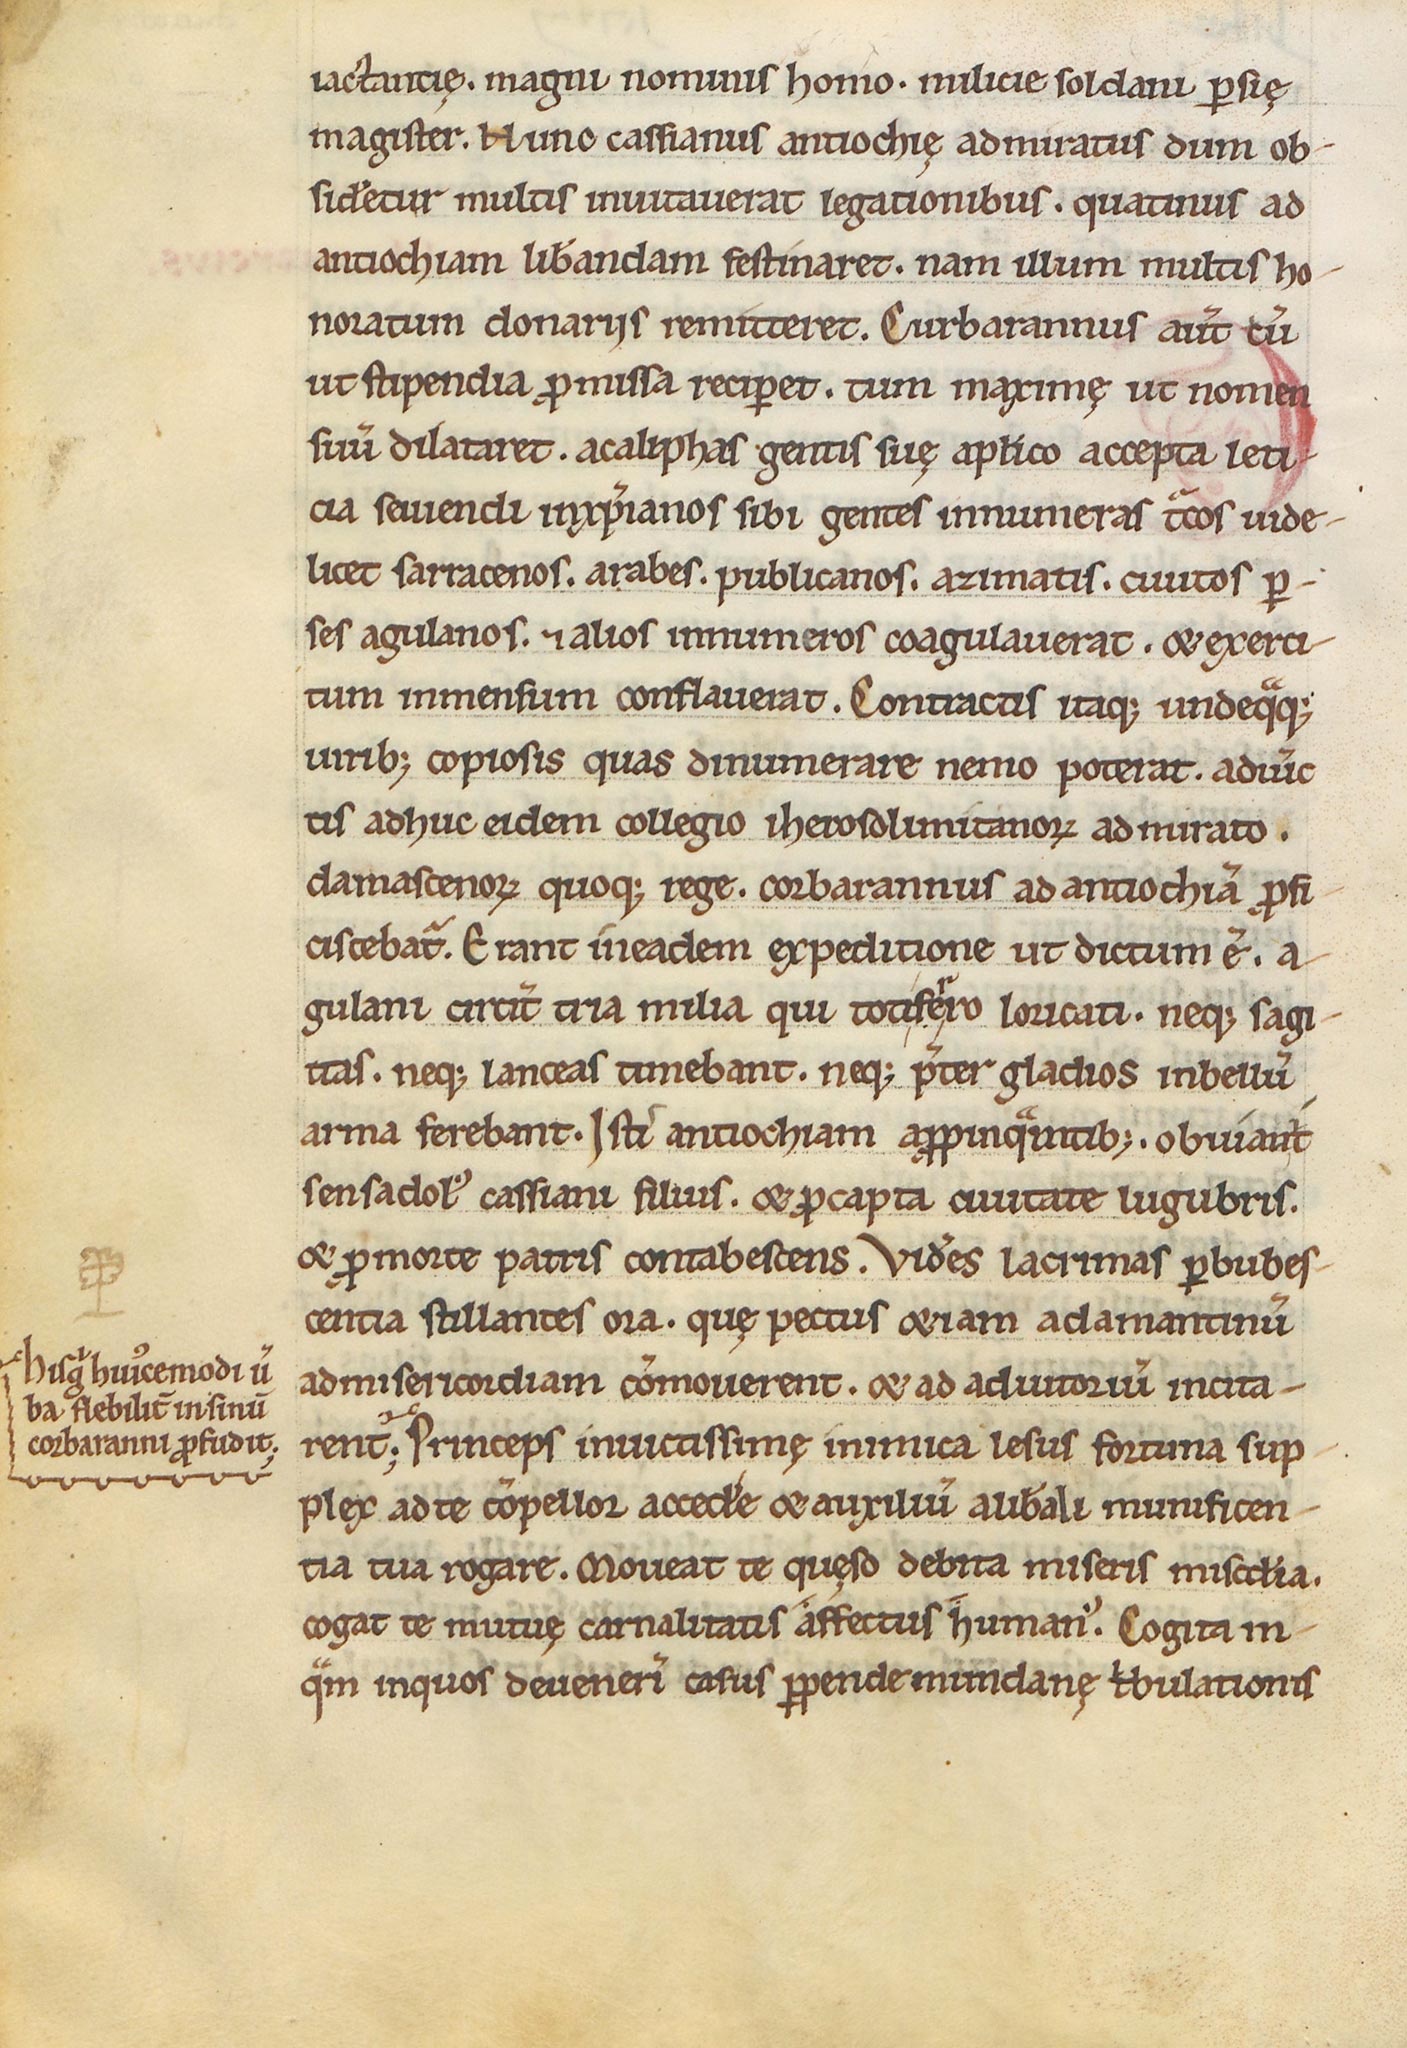 iactantię. magni nominis homo. milicie soldani ꝑsię
magister. Hunc cassianus antiochię admiratus dum ob-
sid̾etur multis inuitauerat legationibus. quatinus ad
antiochiam lib̾andam festinaret. nam illum multis ho-
noratum donarijs remitteret. Curbarannus aut̄ cū
ut stipendia ꝓmissa reciꝑet. tum maximę ut nomen
suū dilataret. acaliphas gentis suę apl̓ico accepta leti-
cia seuiendi inxp̄ianos sibi gentes innumeras tᵃcos uide-
licet sarracenos. arabes. publicanos. azimatis. cuutos ꝑ-
ses agulanos. ⁊ alios innumeros coagulauerat. & exerci-
tum inmensum conflauerat. Contractis itaq; undeqᵃq;
uirib; copiosis quas dinumerare nemo poterat. adiūc
tis adhuc eidem collegio iherosolimitanoꝝ admirato.
damascenoꝝ quoq; rege. corbarannus ad antiochiā ꝓfi-
ciscebat᷑. Erant ineadem expeditione ut dictum ē. a-
gulani circit̄ tria milia qui totiferro loricati. neq; sagi-
ttas. neq; lanceas timebant. neq; p̄ter gladios inbellū
arma ferebant. Isti antiochiam aꝓpinqᵃntib;. obuiaūt
sensadol᷒ cassiani filius. & ꝓcapta ciuitate lugubris.
& ꝓmorte patris contabescens. Vid̾es lacrimas ꝑbubes-
centia stillantes ora. quę pectus &iam adamantinū
admisericordiam cōmouerent. & ad adiutoriū incita-
rent᷑; Princeps inuictissimę inimica lesus fortuna sup-
plex ad te cōpellor acced̾e & auxiliū alib̾ali munificen-
tia tua rogare. Moueat te quęso debita miseris misc̄dia.
cogat te mutuę carnalitatis affectus human᷒. Cogita in-
qᵃm inquos deuenerī casus ꝑpende mundanę t̾bulationis
hisg̾ hui᷒cemodi ū
ba flebilit̄ insinū
corbaranni ꝓfudit;